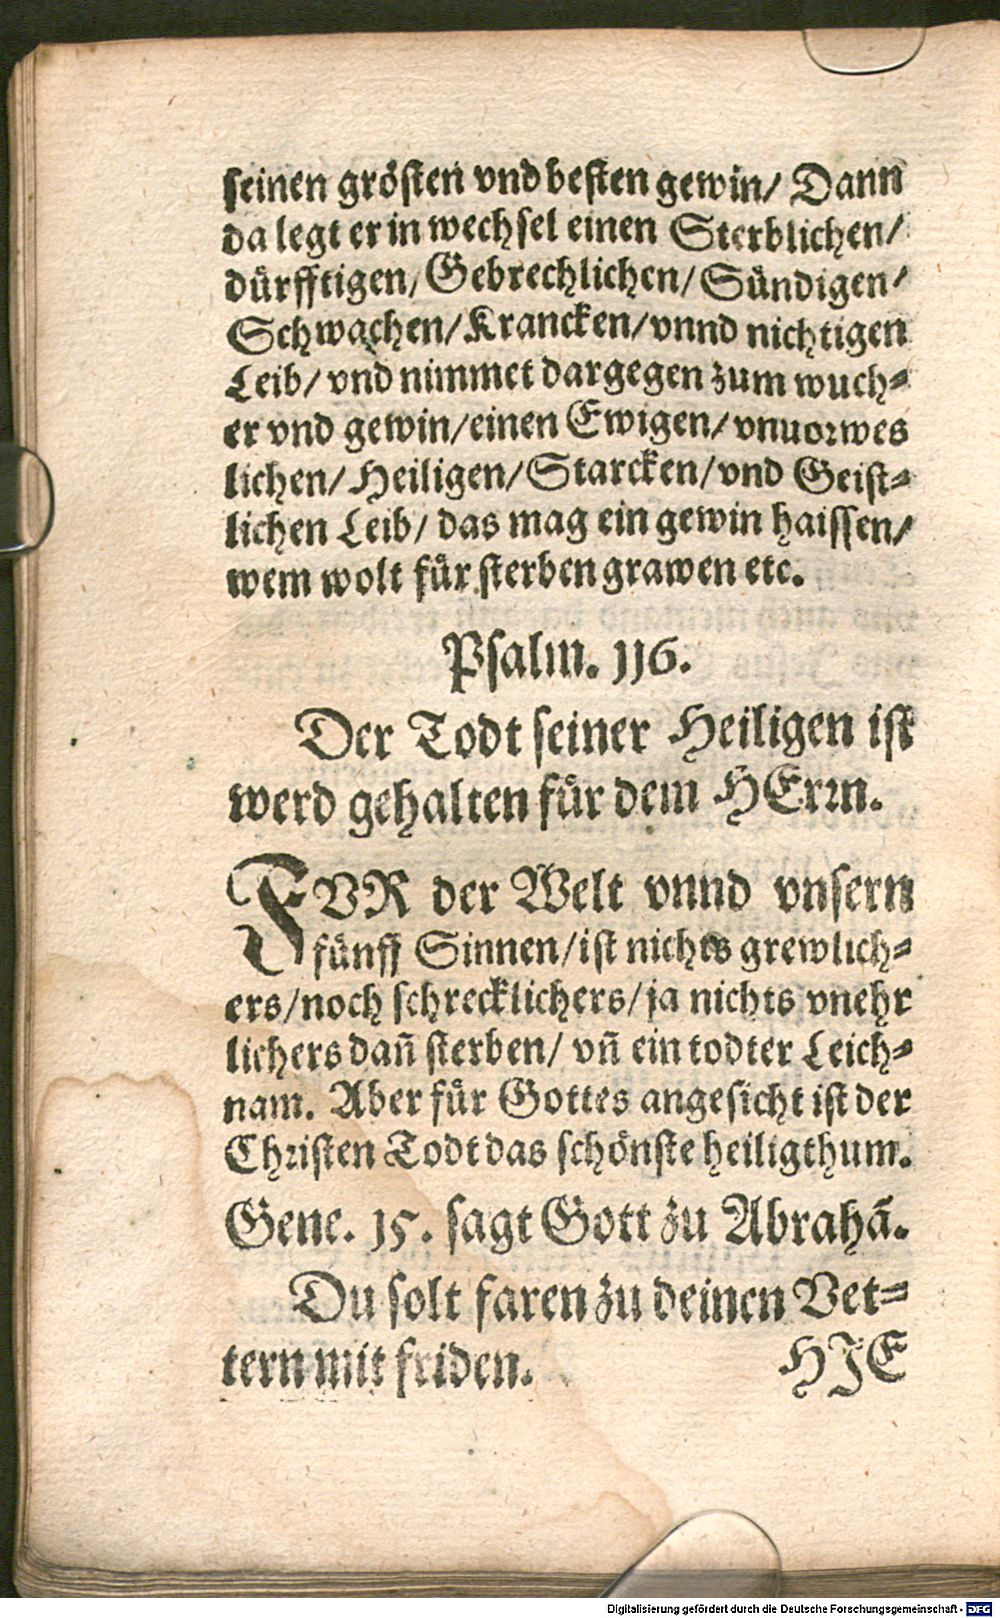 seinen grösten vnd besten gewin/ Dann
da legt er in wechsel einen Sterblichen/
dürfftigen/ Gebrechlichen/ Sündigen/
Schwachen/ Krancken/ vnnd nichtigen
Leib/ vnd nimmet dargegen zum wuch-
er vnd gewin/ einen Ewigen/ vnuorwes
lichen/ Heiligen/ Starcken/ vnd Geist-
lichen Leib/ das mag ein gewin haissen/
wem wolt für sterben grawen etc.
Psalm. 116.
Der Todt seiner Heiligen ist
werd gehalten für dem HErrn.
FVR der Welt vnnd vnsern
fünff Sinnen/ ist nichts grewlich-
ers/ noch schrecklichers/ ja nichts vnehr
lichers dañ sterben/ vñ ein todter Leich-
nam. Aber für Gottes angesicht ist der
Christen Todt das schönste heiligthum.
Gene. 15. sagt Gott zu Abrahã.
Du solt faren zu deinen Vet-
tern mit friden. HJE
Digitalisierung gefördert durch die Deutsche Forschungsgemeinschaft - DFG